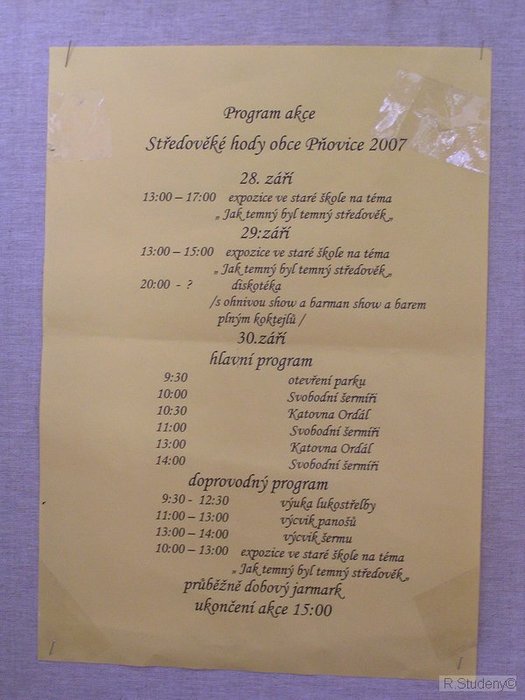 Program akce
Středověké hody obce Pňovice 2007
28. září
13:00 – 17:00 expozice ve staré škole na téma
„ Jak temný byl temný středověk „
29.září
13:00 – 15:00 expozice ve staré škole na téma
„ Jak temný byl temný středověk „
20:00 - ? diskotéka
/s ohnivou show a barman show a barem
plným koktejlů /
30.září
hlavní program
9:30 otevření parku
10:00 Svobodní šermíři
10:30 Katovna Ordál
11:00 Svobodní šermíři
13:00 Katovna Ordál
14:00 Svobodní šermíři
doprovodný program
9:30 - 12:30 výuka lukostřelby
11:00 – 13:00 výcvik panošů
13:00 – 14:00 výcvik šermu
10:00 – 13:00 expozice ve staré škole na téma
„ Jak temný byl temný středověk „
průběžně dobový jarmark
ukončení akce 15:00
R.Studeny©